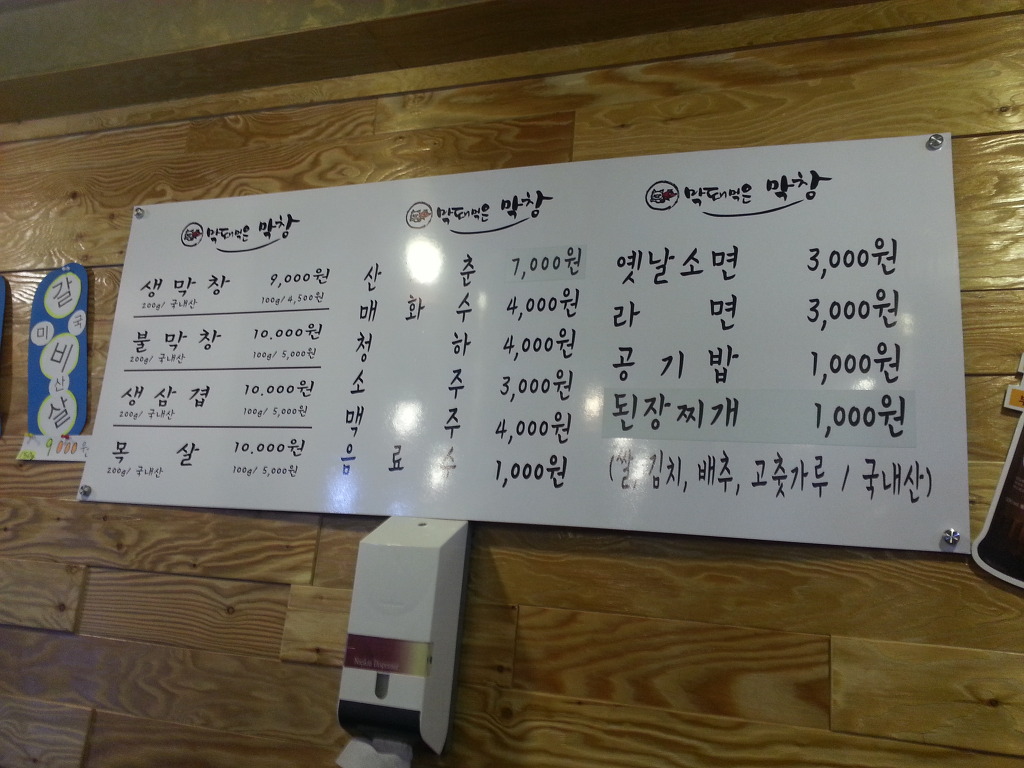 막때먹은 막창
생막창 9,000원
200g/ 국내산 100g/ 4,500원
불막창 10.000원
200g/ 국내산 100g/ 5,000원
생삼겹 10.000원
200g/ 국내산 100g/ 5,000원
목살 10.000원
200g/ 국내산 100g/ 5,000원
막때먹은 막창
산춘 7,000원
매화수 4,000원
청하 4,000원
소주 3,000원
맥주 4,000원
음료수 1,000원
막때먹은 막창
옛날소면 3,000원
라면 3,000원
공기밥 1,000원
된장찌개 1,000원
(쌀, 김치, 배추, 고춧가루 / 국내산)
갈
미국
비
산
살
9000원
Napkin Dispenser